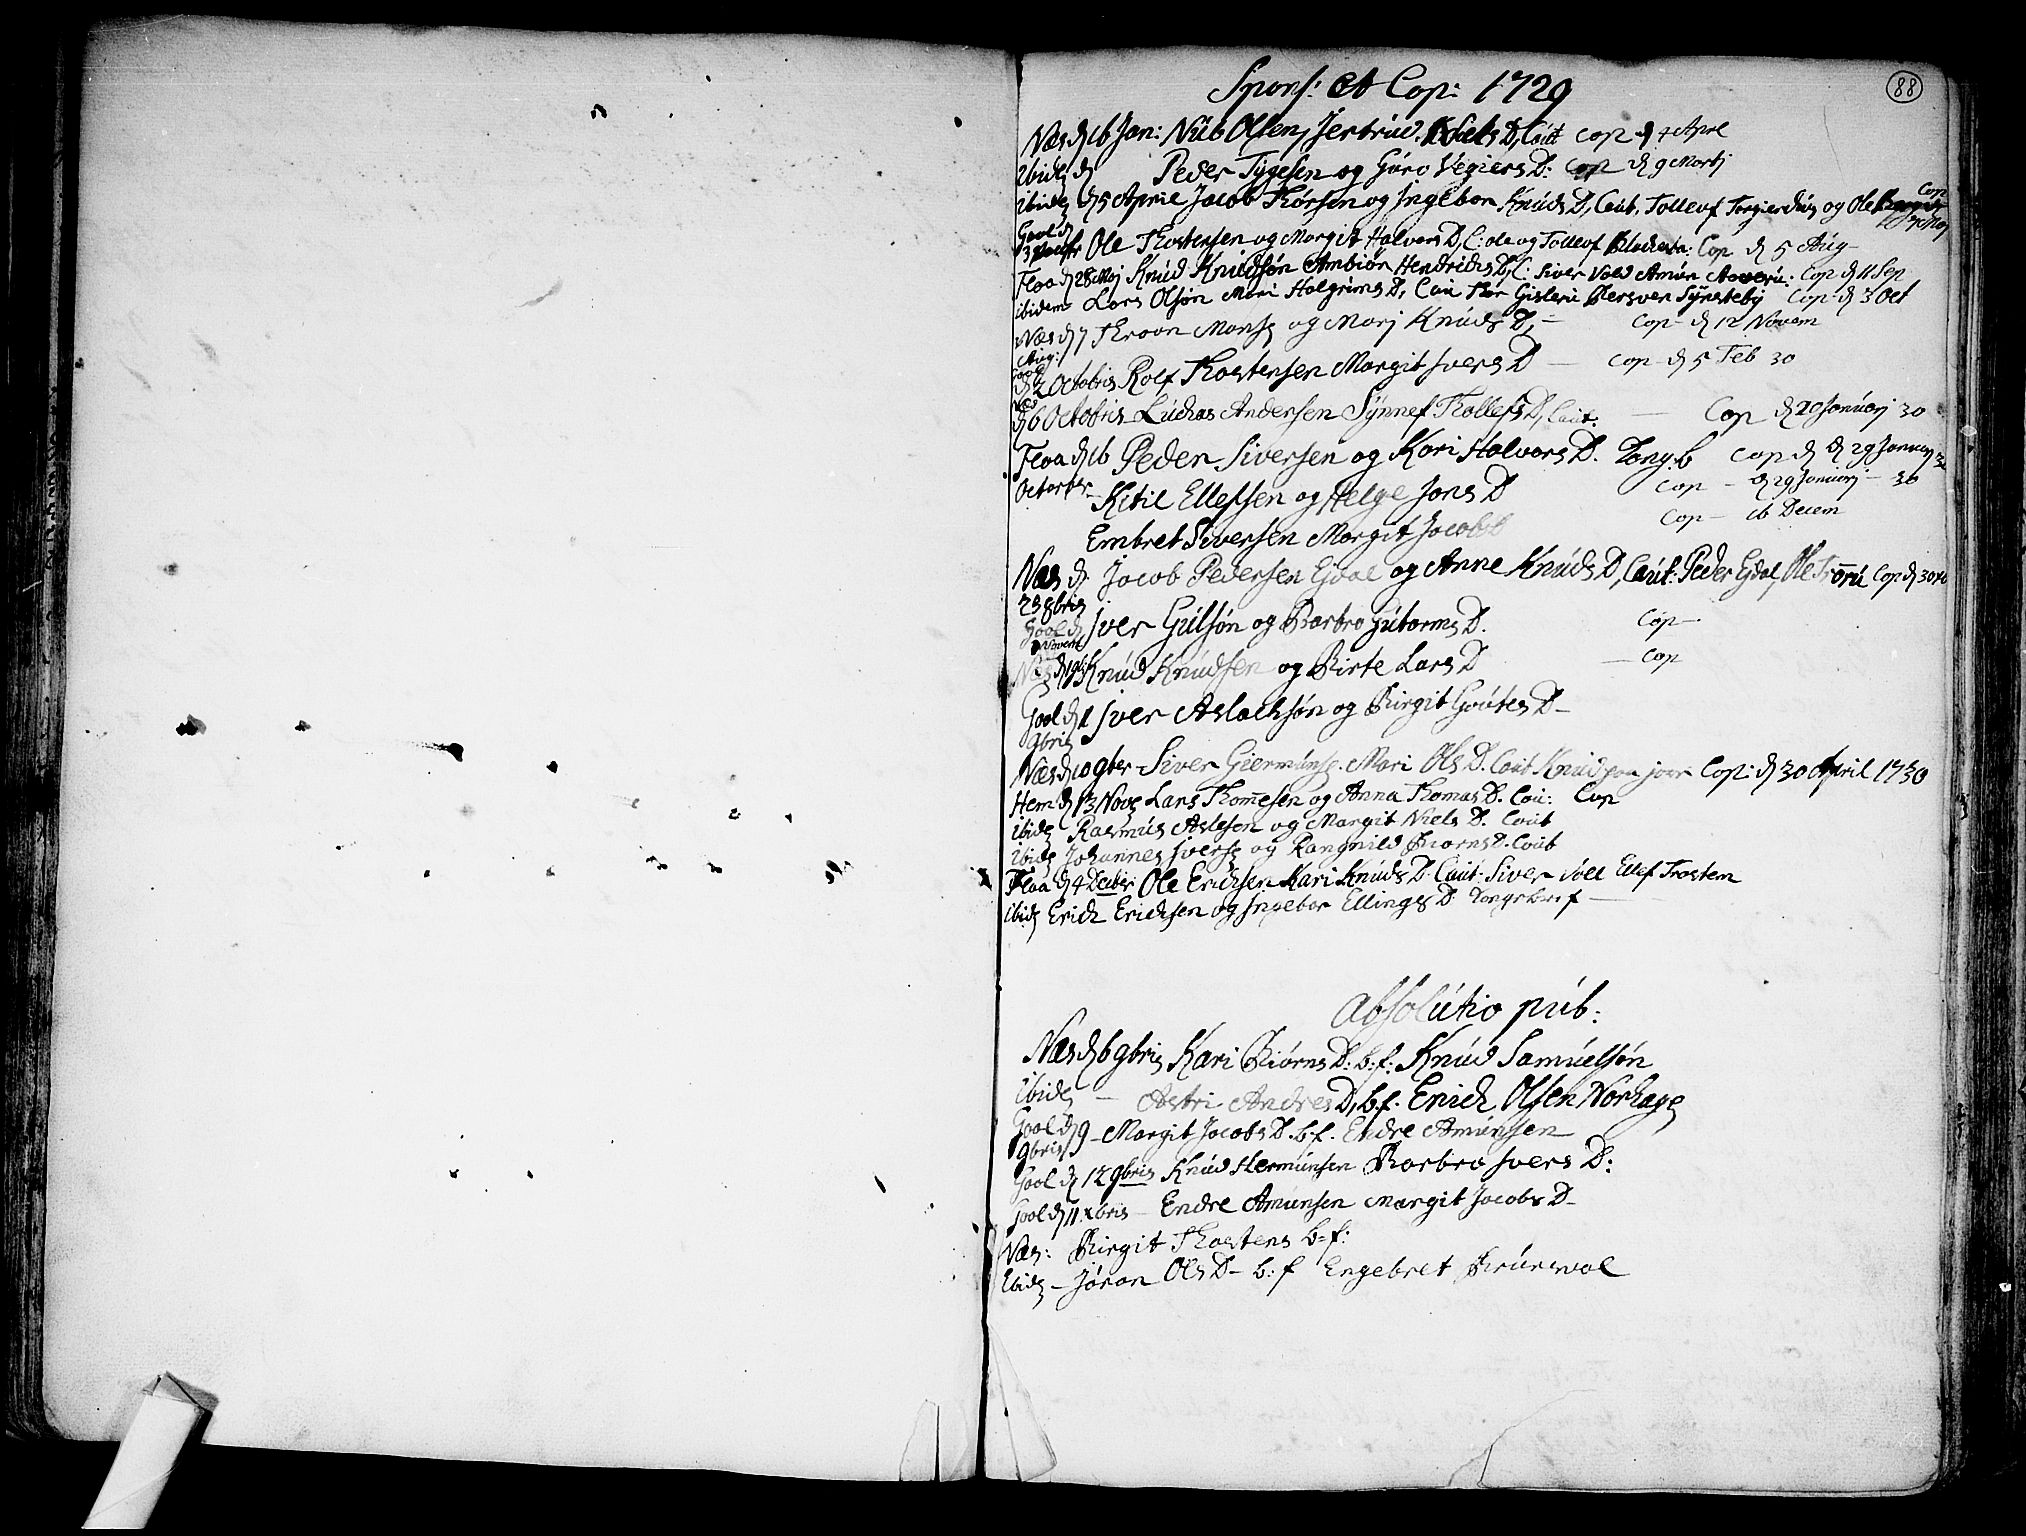 88
Spons: et Cop: 1729
Næs d 16 Jan: Nils Olsen, Jertrud Niels D, Caut cop d 4 Aprl
ibid d Peder Tygesen og Guro Vegiers D: Cop d 9 Martj
ibid d 5 Aprile Jacob Thorsen og Ingebor Knuds D, Caut, Tollevf og Ole Cop
Gool d Ole Thostensen og Margit Halvors D, C: ole og Tollevf Cop d 5 Aug
Floa d 28 Maj Knud Knudsøn Ambiør Hendrichs D, C: Siver Vold Amun Cop d 11 Sep
ibidem Lars Olsøn Mari Halgrims D, Caut Thor Cop d 3 Oct
Næs d 7 Aug: Throon Mons og Marj Knuds D, - Cop d 12 Novem
Gool d 2 Octobris Rolf Thostensen Margit Ivers D - cop d 5 Feb 30
Næs d 6 Octobris Luchas Andersen Synnef Thollefs D, Caut: - Cop d 20 Januarj 30
Floa d 16 Peder Siversen og Kari Halvors D. Tong.b cop d 29 Januarj 30
Octobris - Kitil Ellefsen og Helge Jons D cop - d 29 Januarj - 30
Embret Siversen Margit Jacobs D cop - 16 Decem
Næs d Jacob Pedersen Ejdal og Anne Knuds D, Caut: Peder Ejdal, Ole Cop d 30
23 8bris
Gool d Iver Gulsøn og Barbro Gutorms D. Cop -
Novem
Næs d Knud Knudsen og Birte Lars D - Cop
Gool d 1 Iver Aslachsøn og Birgit Goutes D -
9bris
Næs d 10 9ber - Siver Giermuns. Mari Ols D. Caut Knud Cop: d 30 April 1730
Hem d 13 Nov Lars Thomesen og Anna Thomas D. Cau: Cop
ibid Rasmus Aslesen og Margit Niels D. Caut
ibid Johannes Ivers og Rangnild Biørns D. Caut
Floa d 4 Decbr Ole Erichsen Kari Knuds D Caut: Siver Ellef Trostem
ibid Erich Erichsen og Ingebor Ellings D. -
Absolutio pub:
Næs d 6 9bris Kari Biørns D: b: f: Knud Samuelsøn
ibid - Astri Andres D, b.f: Erich Olsen Norhage
Gool d 9 - Margit Jacobs D. b. f. Endre Amunsen
9bris
Gool d 12 9bris Knud Hermunsen Barbro Ivers D:
Gool d 11 xbris - Endre Amunsen Margit Jacobs D -
Næs: Birgit Thostens b: f:
Ibid - Jøran Ols D - b: f Engebret Brunsvol